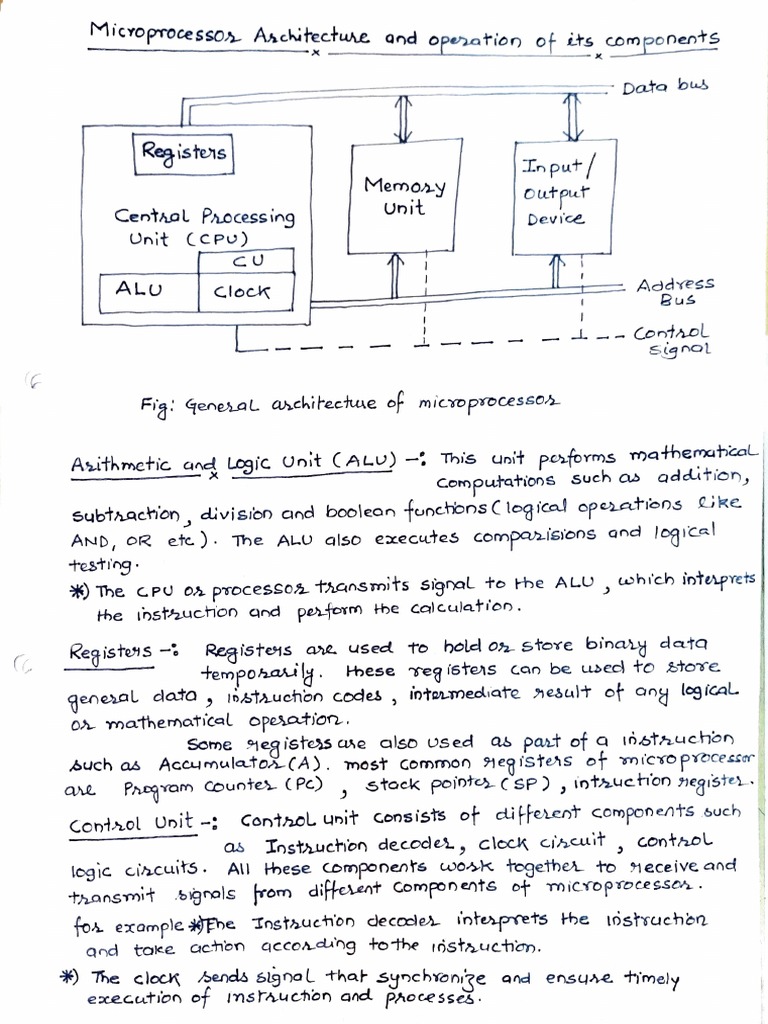 Microprocessor Architecture and operation of its components
Data bus
Registers
Central Processing
Unit (CPU)
CU
ALU
Clock
Memory
Unit
Input/
Output
Device
Address
Bus
Control
Signal
Fig: General architecture of microprocessor
Arithmetic and Logic Unit (ALU) -: This unit performs mathematical
computations such as addition,
subtraction, division and boolean functions (logical operations like
AND, OR etc). The ALU also executes comparisions and logical
testing.
*) The CPU or processor transmits signal to the ALU, which interprets
the instruction and perform the calculation.
Registers -: Registers are used to hold or store binary data
temporarily. these registers can be used to store
general data, instruction codes, intermediate result of any logical
or mathematical operation.
Some registers are also used as part of a instruction
such as Accumulator (A). most common registers of microprocessor
are Program counter (PC), stack pointer (SP), intruction register.
Control Unit -: Control unit consists of different components such
as Instruction decoder, clock circuit, control
logic circuits. All these components work together to receive and
transmit signals from different components of microprocessor.
for example *) The Instruction decoder interprets the instruction
and take action according to the instruction.
*) The clock sends signal that synchronize and ensure timely
execution of instruction and processes.